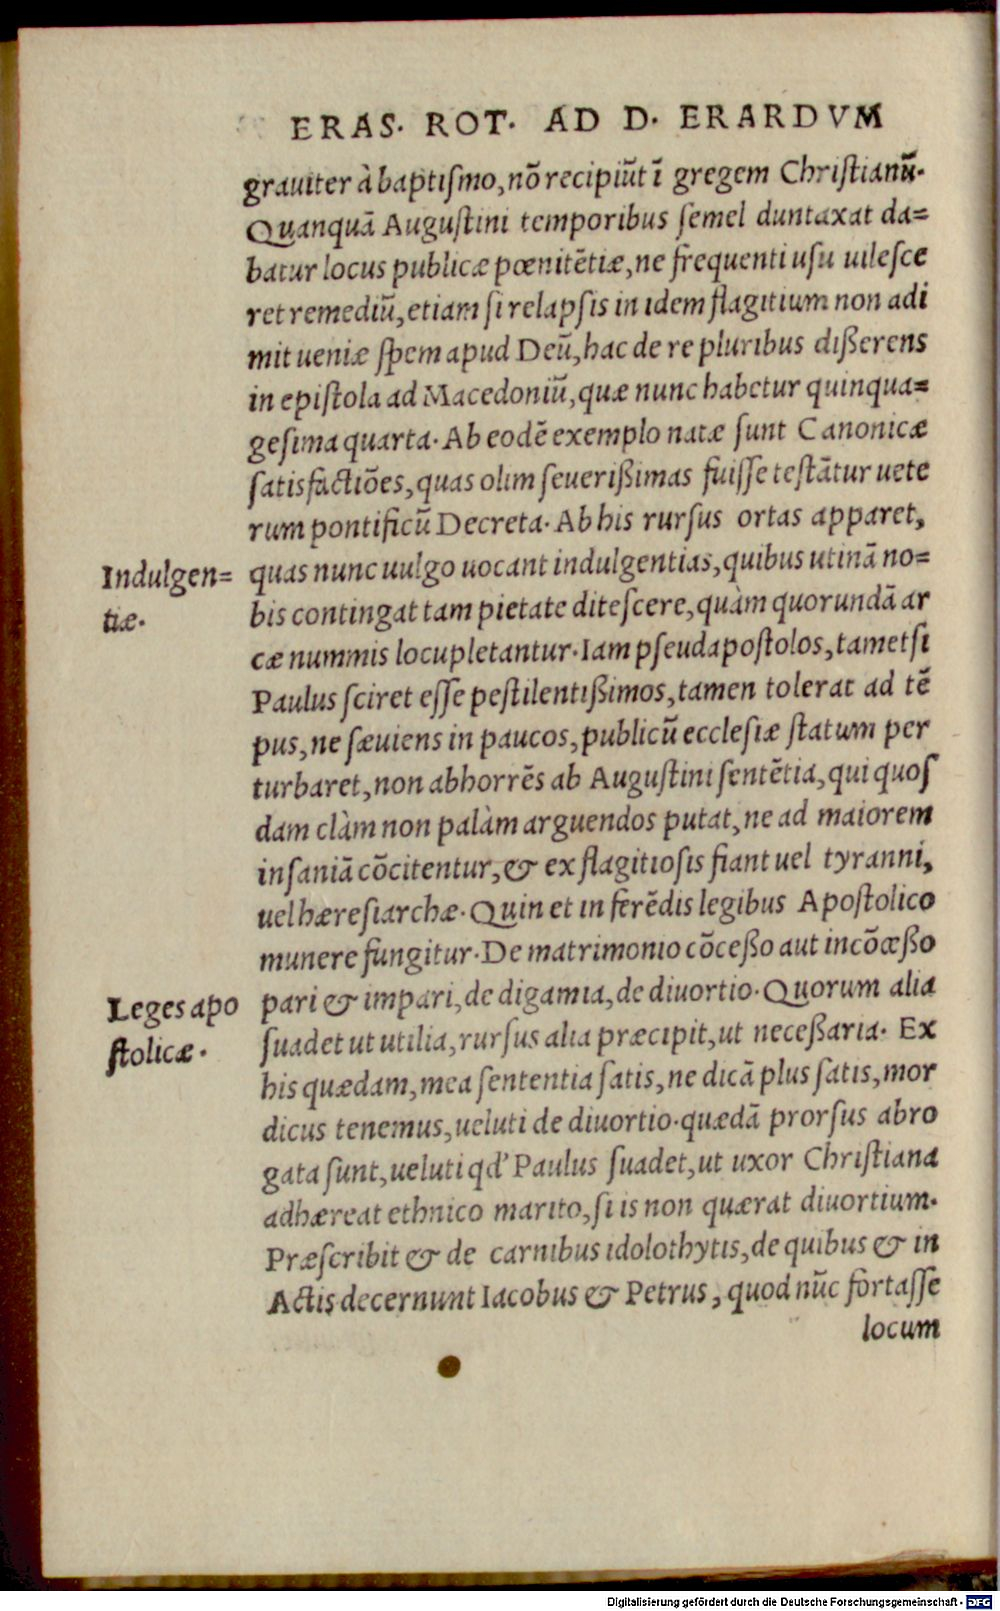 ERAS. ROT. AD D. ERARDVM
grauiter à baptiſmo, nõ recipiũt ĩ gregem Chriſtianũ.
Quanquã Auguſtini temporibus ſemel duntaxat da=
batur locus publicæ pœnitẽtiæ, ne frequenti uſu uileſce
ret remediũ, etiam ſi relapſis in idem flagitium non adi
mit ueniæ ſpem apud Deũ, hac de re pluribus dißerens
in epiſtola ad Macedoniũ, quæ nunc habetur quinqua=
geſima quarta. Ab eodẽ exemplo natæ ſunt Canonicæ
ſatisfactiões, quas olim ſeuerißimas fuiſſe teſtãtur uete
rum pontificũ Decreta. Ab his rurſus ortas apparet,
Indulgen=
tiæ.
quas nunc uulgo uocant indulgentias, quibus utinã no=
bis contingat tam pietate diteſcere, quàm quorundã ar
cæ nummis locupletantur. Iam pſeudapoſtolos, tametſi
Paulus ſciret eſſe peſtilentißimos, tamen tolerat ad tẽ
pus, ne ſæuiens in paucos, publicũ eccleſiæ ſtatum per
turbaret, non abhorrẽs ab Auguſtini ſentẽtia, qui quoſ
dam clàm non palàm arguendos putat, ne ad maiorem
inſaniã cõcitentur, & ex flagitioſis fiant uel tyranni,
uel hæreſiarchæ. Quin et in ferẽdis legibus Apoſtolico
munere fungitur. De matrimonio cõceßo aut incõceßo
Leges apo
ſtolicæ.
pari & impari, de digamia, de diuortio. Quorum alia
ſuadet ut utilia, rurſus alia præcipit, ut neceßaria. Ex
his quædam, mea ſententia ſatis, ne dicã plus ſatis, mor
dicus tenemus, ueluti de diuortio. quædã prorſus abro
gata ſunt, ueluti qd' Paulus ſuadet, ut uxor Chriſtiana
adhæreat ethnico marito, ſi is non quærat diuortium.
Præſcribit & de carnibus idolothytis, de quibus & in
Actis decernunt Iacobus & Petrus, quod nũc fortaſſe
locum
Digitalisierung gefördert durch die Deutsche Forschungsgemeinschaft - DFG